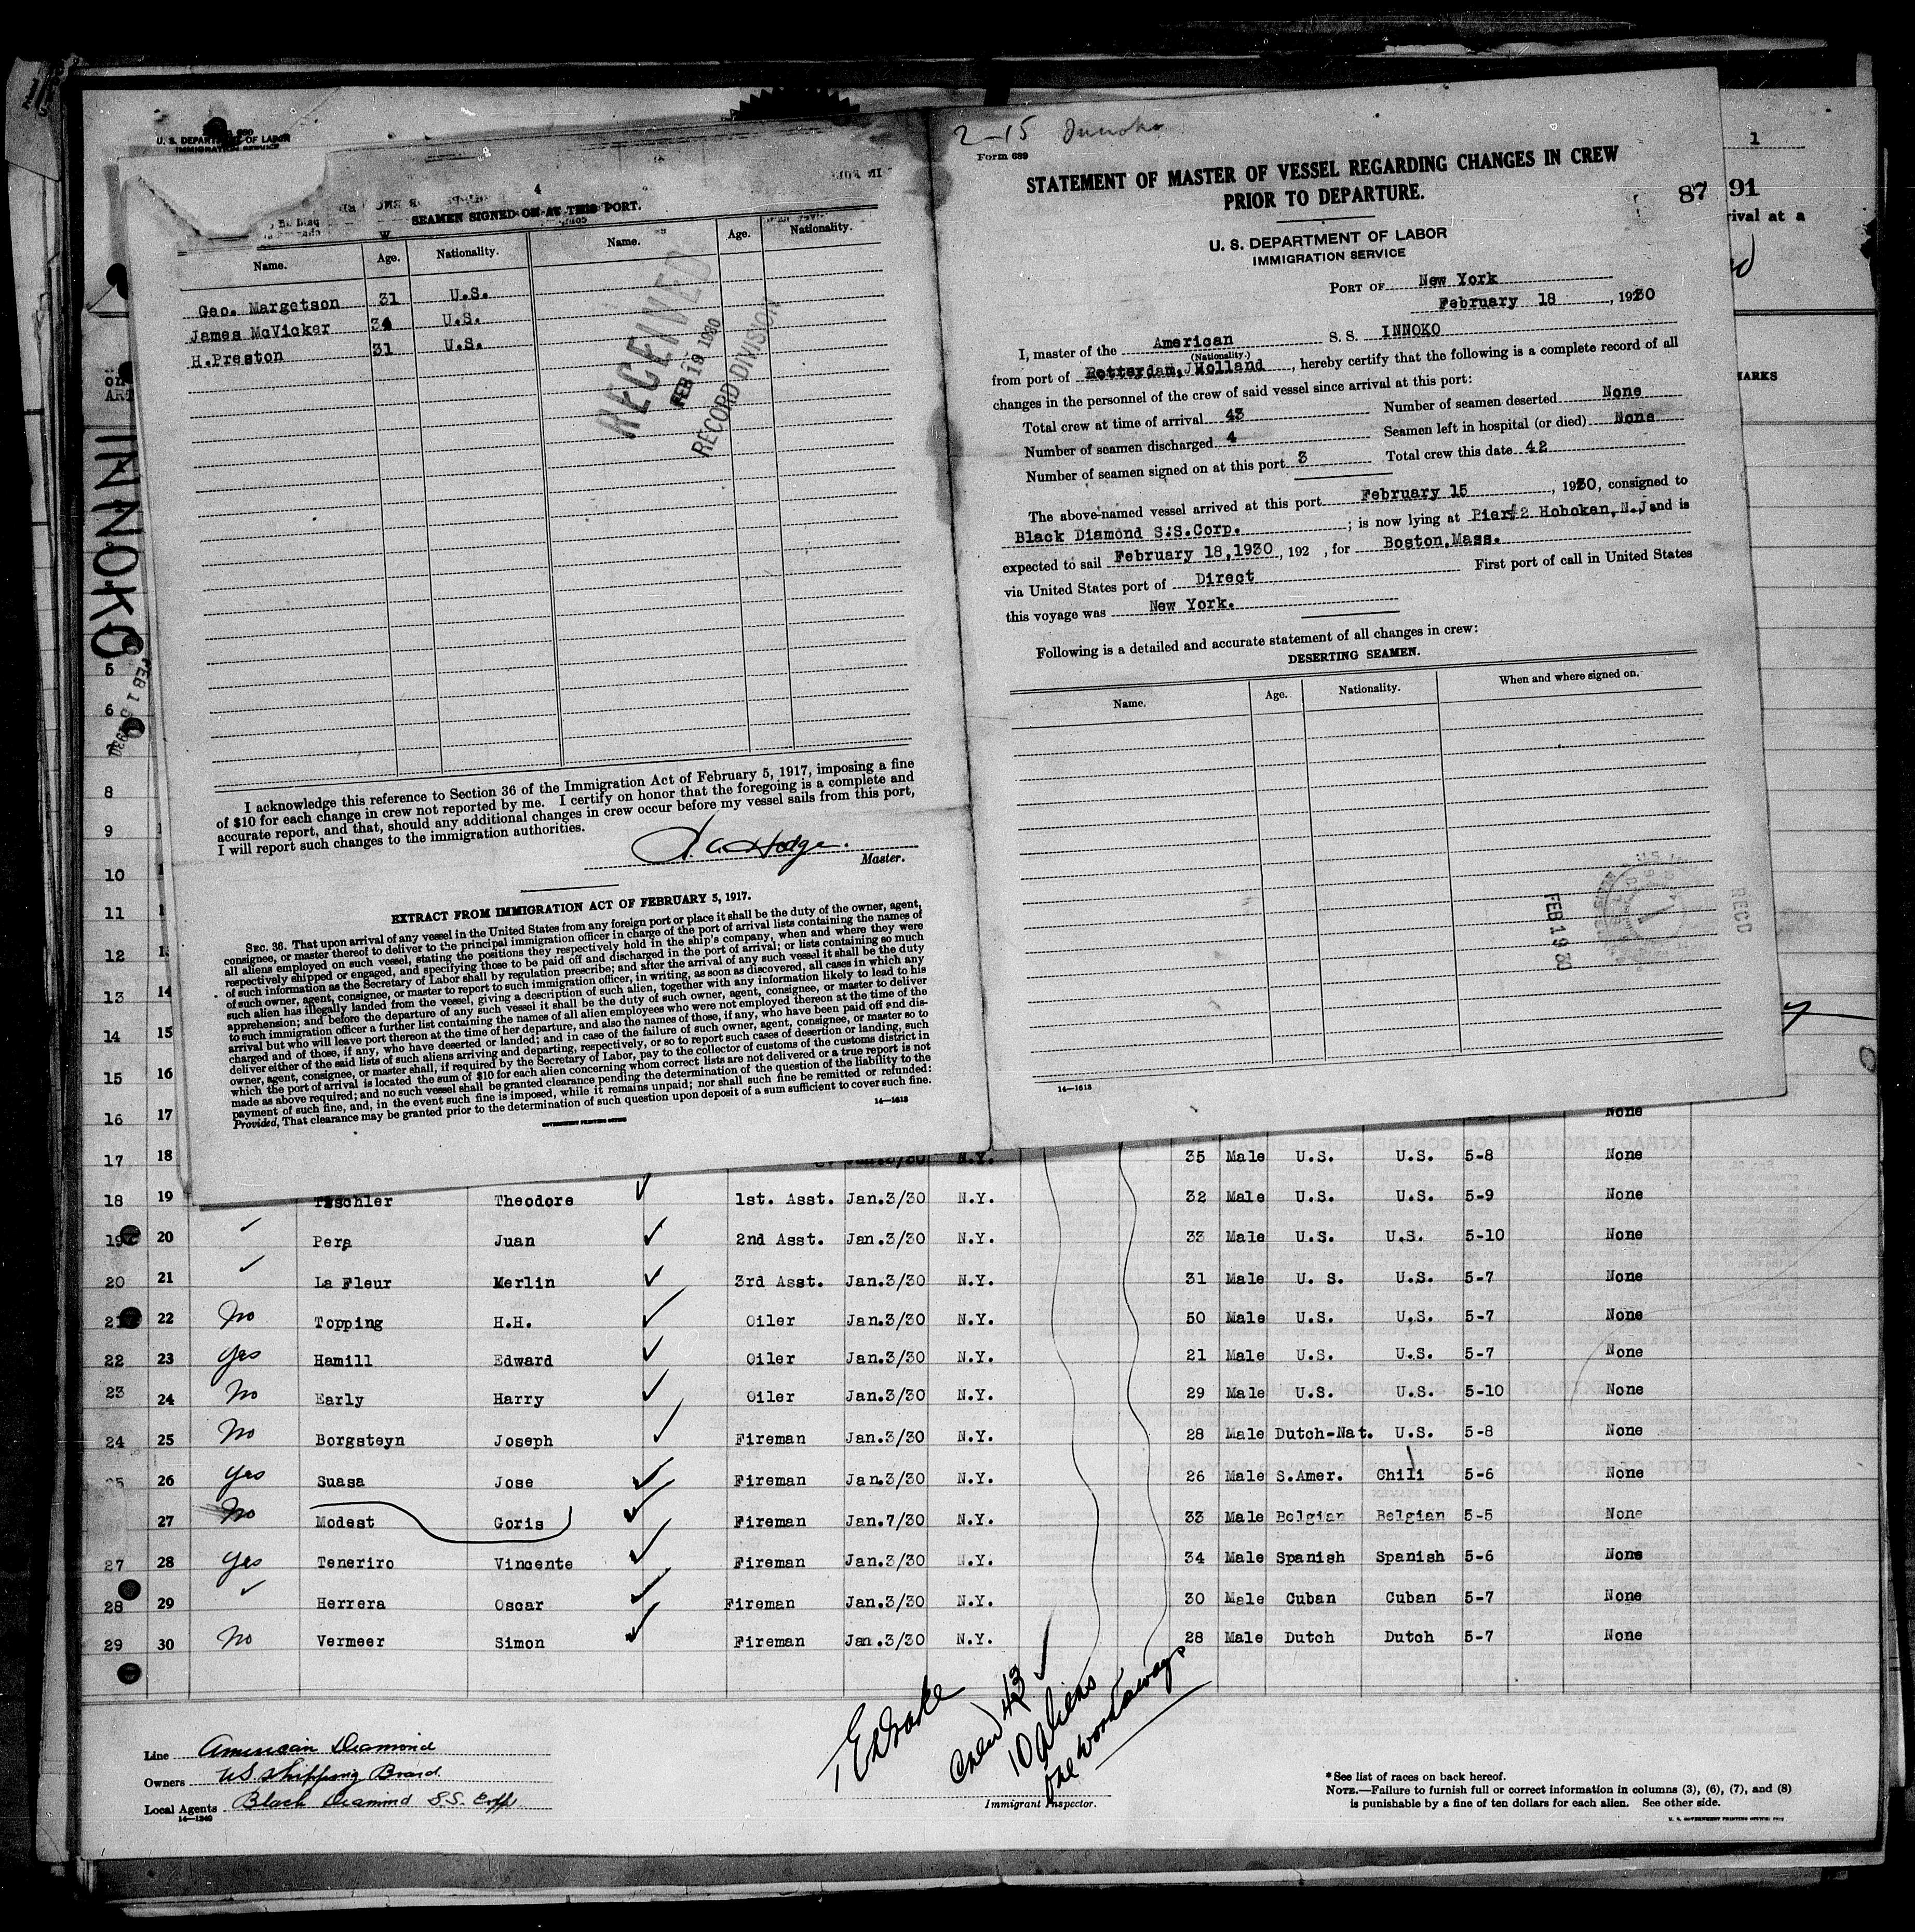 U. S. DEPARTMENT OF LABOR
IMMIGRATION SERVICE
4
SEAMEN SIGNED ON AT THIS PORT.
Name. Age. Nationality. Name. Age. Nationality.
Geo. Margetson 31 U.S.
James McVicker 34 U.S.
H.Preston 31 U.S.
RECEIVED
FEB 19 1930
RECORD DIVISION
I acknowledge this reference to Section 36 of the Immigration Act of February 5, 1917, imposing a fine
of $10 for each change in crew not reported by me. I certify on honor that the foregoing is a complete and
accurate report, and that, should any additional changes in crew occur before my vessel sails from this port,
I will report such changes to the immigration authorities.
Master.
EXTRACT FROM IMMIGRATION ACT OF FEBRUARY 5, 1917.
SEC. 36. That upon arrival of any vessel in the United States from any foreign port or place it shall be the duty of the owner, agent,
consignee, or master thereof to deliver to the principal immigration officer in charge of the port of arrival lists containing the names of
all aliens employed on such vessel, stating the positions they respectively hold in the ship's company, when and where they were
respectively shipped or engaged, and specifying those to be paid off and discharged in the port of arrival; or lists containing so much
of such information as the Secretary of Labor shall by regulation prescribe; and after the arrival of any such vessel it shall be the duty
of such owner, agent, consignee, or master to report to such immigration officer, in writing, as soon as discovered, all cases in which any
such alien has illegally landed from the vessel, giving a description of such alien, together with any information likely to lead to his
apprehension; and before the departure of any such vessel it shall be the duty of such owner, agent, consignee, or master to deliver
to such immigration officer a further list containing the names of all alien employees who were not employed thereon at the time of the
arrival but who will leave port thereon at the time of her departure, and also the names of those, if any, who have been paid off and dis-
charged and of those, if any, who have deserted or landed; and in case of the failure of such owner, agent, consignee, or master so to
deliver either of the said lists of such aliens arriving and departing, respectively, or so to report such cases of desertion or landing, such
owner, agent, consignee, or master shall, if required by the Secretary of Labor, pay to the collector of customs of the customs district in
which the port of arrival is located the sum of $10 for each alien concerning whom correct lists are not delivered or a true report is not
made as above required; and no such vessel shall be granted clearance pending the determination of the question of the liability to the
payment of such fine, and, in the event such fine is imposed, while it remains unpaid; nor shall such fine be remitted or refunded:
Provided, That clearance may be granted prior to the determination of such question upon deposit of a sum sufficient to cover such fine.
14—1613
GOVERNMENT PRINTING OFFICE
2-15 Innoko
Form 689
STATEMENT OF MASTER OF VESSEL REGARDING CHANGES IN CREW
PRIOR TO DEPARTURE.
U. S. DEPARTMENT OF LABOR
IMMIGRATION SERVICE
PORT OF New York
February 18, 1930
I, master of the American S. S. INNOKO
(Nationality.)
from port of Rotterdam, Holland, hereby certify that the following is a complete record of all
changes in the personnel of the crew of said vessel since arrival at this port:
Total crew at time of arrival 43 Number of seamen deserted None
Number of seamen discharged 4 Seamen left in hospital (or died) None
Number of seamen signed on at this port 3 Total crew this date 42
The above-named vessel arrived at this port February 15, 1930, consigned to
Black Diamond S.S.Corp.; is now lying at Pier#2 Hoboken,N.J and is
expected to sail February 18,1930, 192 , for Boston,Mass.
via United States port of Direct First port of call in United States
this voyage was New York.
Following is a detailed and accurate statement of all changes in crew:
DESERTING SEAMEN.
Name. Age. Nationality. When and where signed on.
FEB 19 30
RECD
14—1613
1
87 91
rival at a
MARKS
INNOKO
5
6
7
8
9
10
11
12
13 14
14 15
15 16
16 17 None
17 18 Jan.3/30 N.Y. 35 Male U.S. U.S. 5-8 None
18 19 Tischler Theodore 1st. Asst. Jan.3/30 N.Y. 32 Male U.S. U.S. 5-9 None
19 20 Pera Juan 2nd Asst. Jan.3/30 N.Y. 33 Male U.S. U.S. 5-10 None
20 21 La Fleur Merlin 3rd Asst. Jan.3/30 N.Y. 31 Male U. S. U.S. 5-7 None
21 22 No Topping H.H. Oiler Jan.3/30 N.Y. 50 Male U.S. U.S. 5-7 None
22 23 Yes Hamill Edward Oiler Jan.3/30 N.Y. 21 Male U.S. U.S. 5-7 None
23 24 No Early Harry Oiler Jan.3/30 N.Y. 29 Male U.S. U.S. 5-10 None
24 25 No Borgsteyn Joseph Fireman Jan.3/30 N.Y. 28 Male Dutch-Nat. U.S. 5-8 None
25 26 Yes Suasa Jose Fireman Jan.3/30 N.Y. 26 Male S.Amer. Chili 5-6 None
27 No Modest Goris Fireman Jan.7/30 N.Y. 33 Male Belgian Belgian 5-5 None
27 28 Yes Teneriro Vincente Fireman Jan.3/30 N.Y. 34 Male Spanish Spanish 5-6 None
28 29 Herrera Oscar Fireman Jan.3/30 N.Y. 30 Male Cuban Cuban 5-7 None
29 30 No Vermeer Simon Fireman Jan.3/30 N.Y. 28 Male Dutch Dutch 5-7 None
Crew 43
10 Aliens
one workaway
Immigrant Inspector.
Line American Diamond
Owners US Shipping Board
Local Agents Black Diamond S.S. Corp
14—1240
*See list of races on back hereof.
NOTE.—Failure to furnish full or correct information in columns (3), (6), (7), and (8)
is punishable by a fine of ten dollars for each alien. See other side.